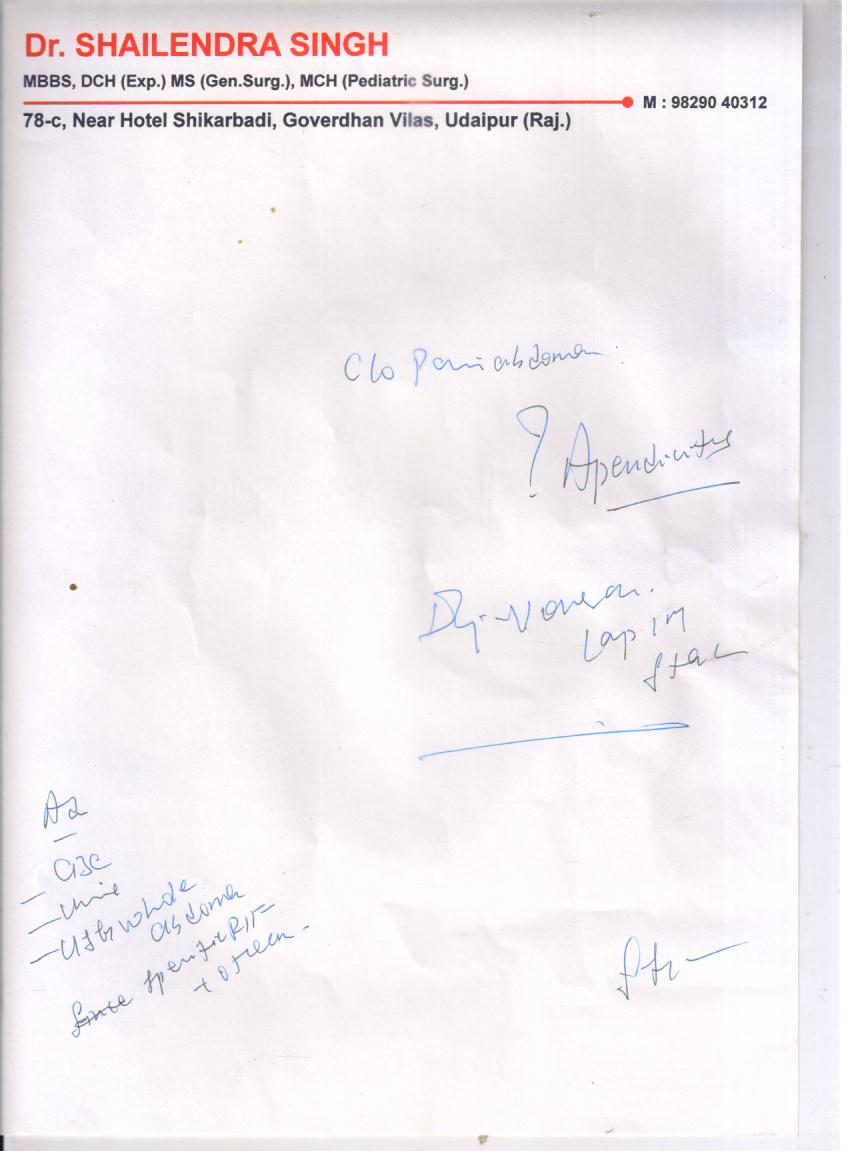 Dr. SHAILENDRA SINGH
MBBS, DCH (Exp.) MS (Gen.Surg.), MCH (Pediatric Surg.)
M : 98290 40312
78-c, Near Hotel Shikarbadi, Goverdhan Vilas, Udaipur (Raj.)
C/o Pain abdomen
? Apendicitis
Inj-
1 M
Stat
Ad
- CBC
- Urine
- USG whole
abdomen
RIF